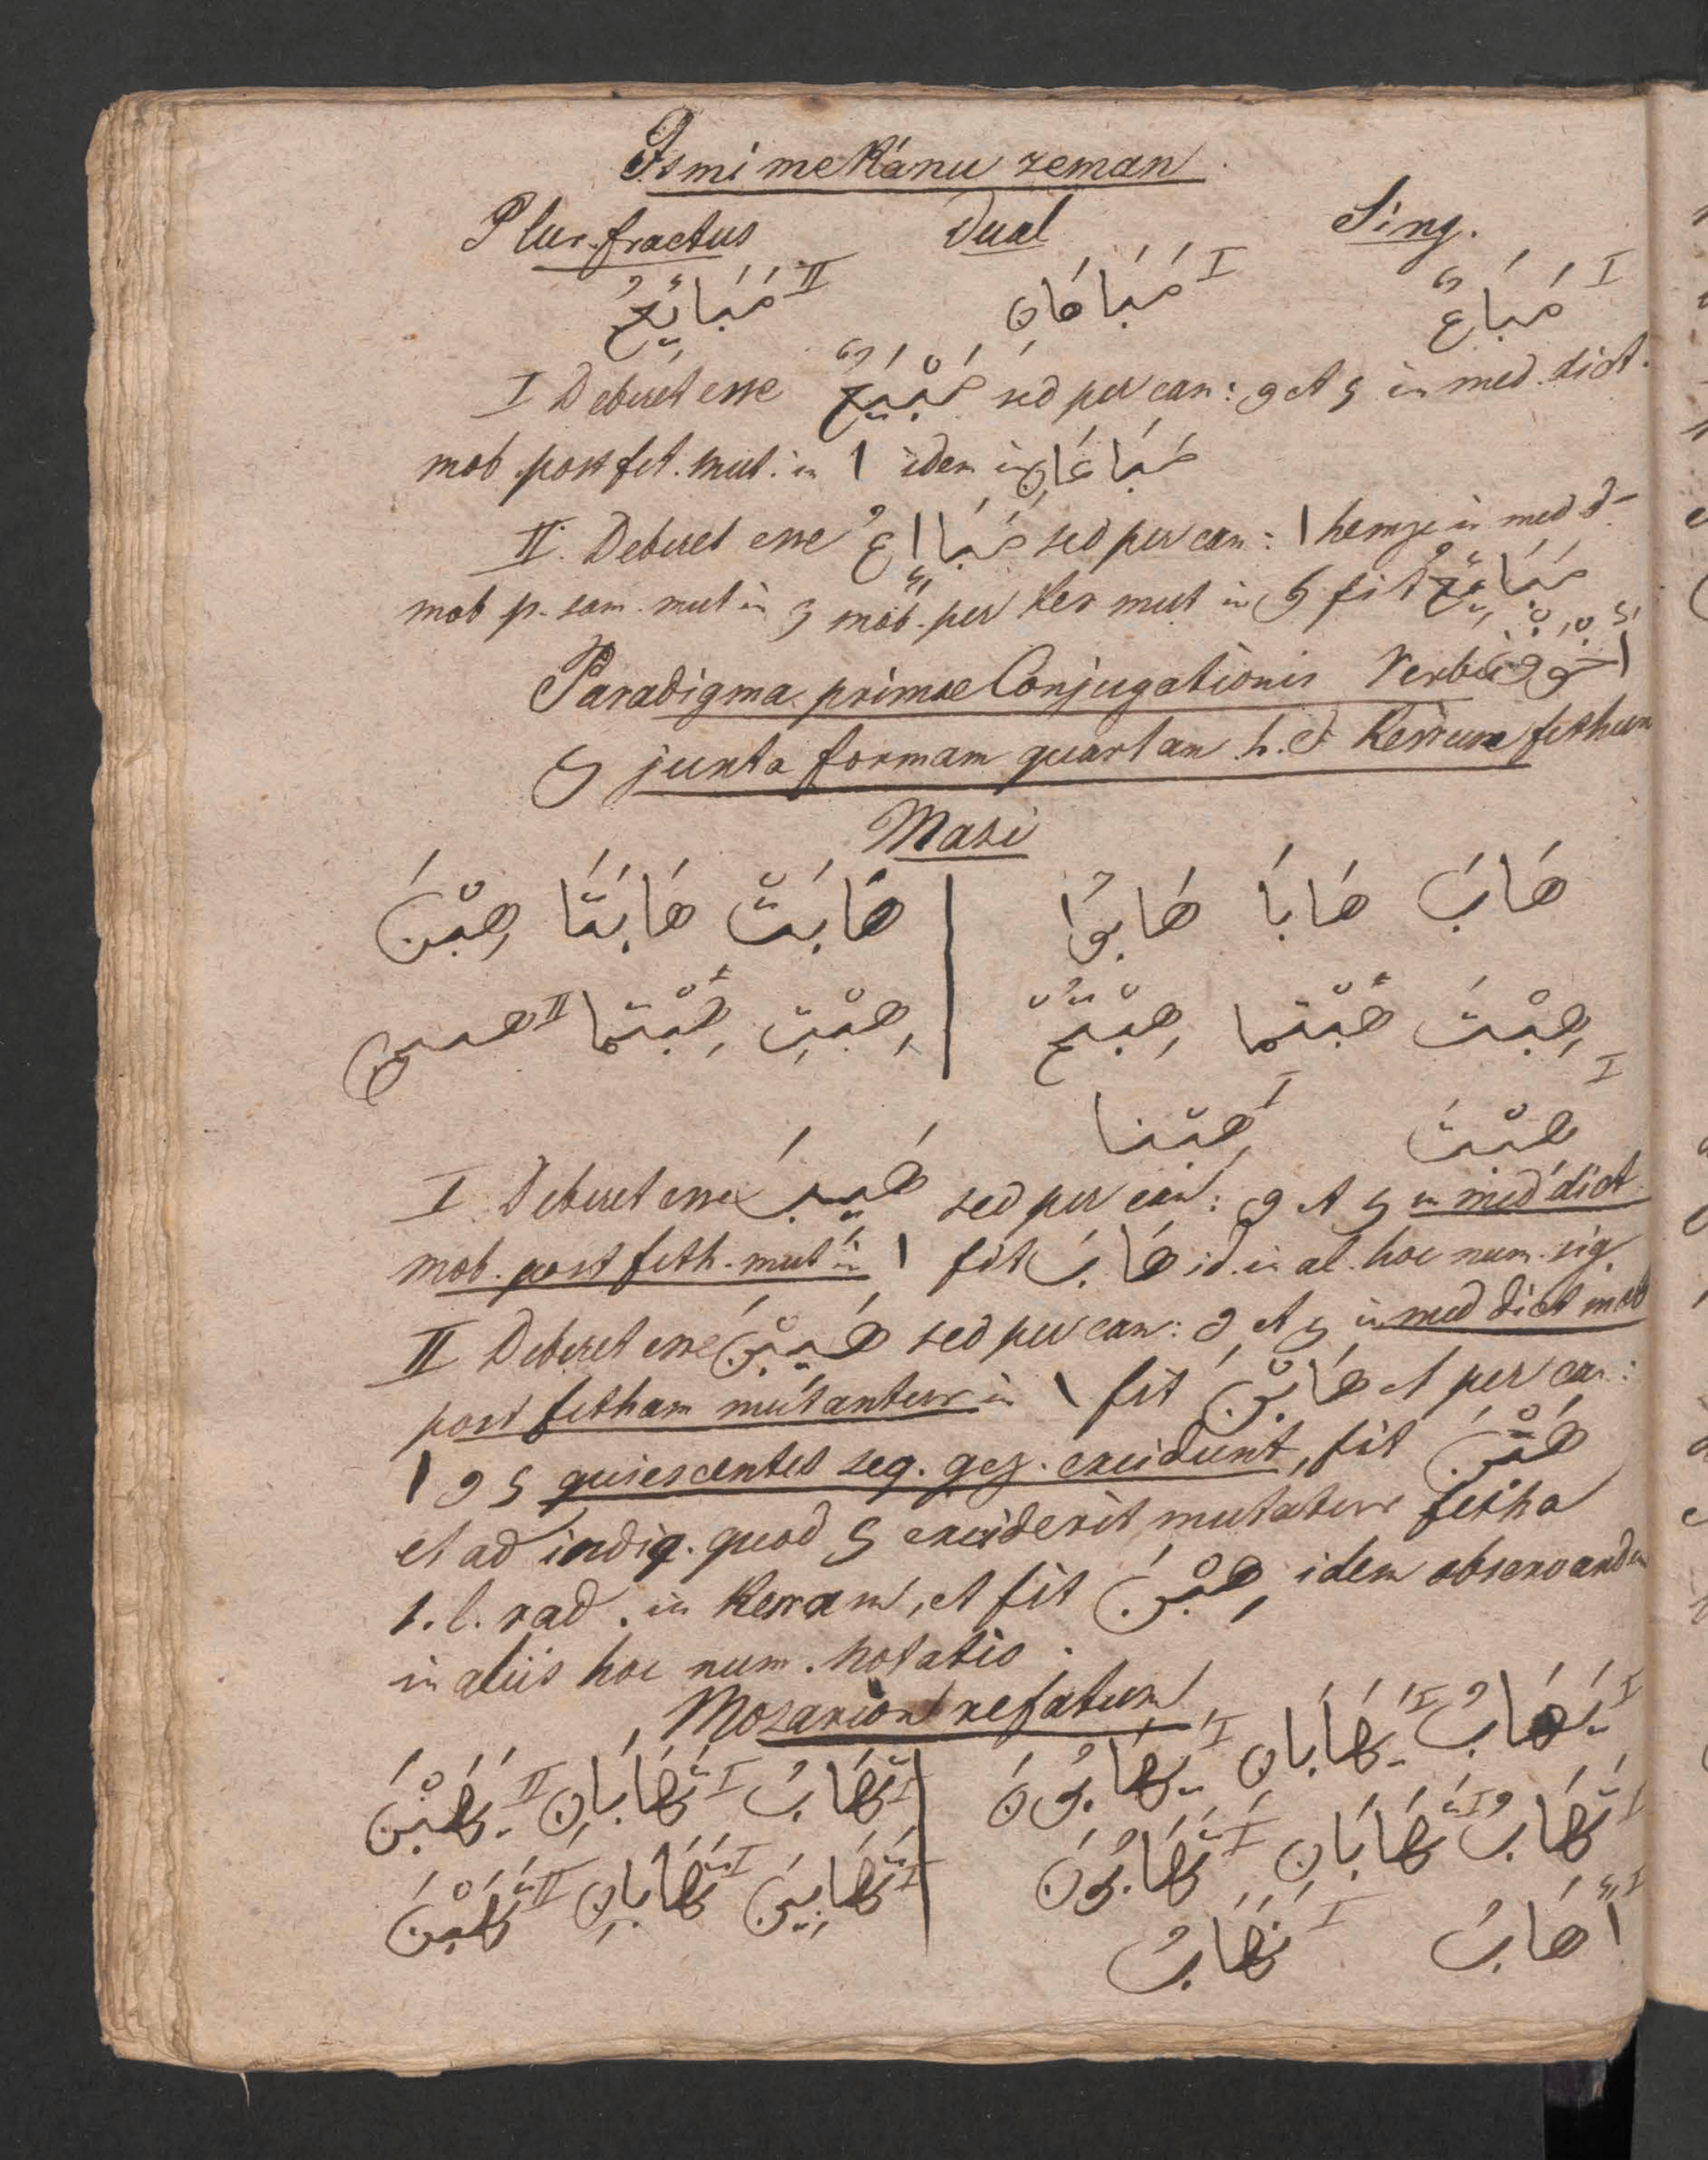 Ismi mekánu zeman
Plur. fractus Dual Sing.
مَبَائِعُ II مَبَاعَانِ I مَبَاعٌ I
I Deberet esse مَبْيَعٌ sed per can: و et ی in med. dict.
mob. post fet. mut. in ا idem in مَبَاعَانِ
II. Deberet esse مَبَااِعُ sed per can: ا hemze in med d-
mob p. sam. mut in ء mob. per kes mut in ی fit مَبَائِعُ
Paradigma primae Conjugationis Verbi أَجْوَفْ
ی juxta formam quartam h. e Kesrum fethum
Mazi
هَابَ هَابَا هَابُوا | هَابَتْ هَابَتَا هِبْنَ
هِبْتَ هِبْتُمَا هِبْتُمْ | هِبْتِ هِبْتُمَا II هبتن
I هِبْتُ I هِبْنَا
I Deberet esse هَيَبَ sed per can: و et ی in med dict
mob. post feth. mut in ا fit هَابَ id. in al. hoc num. sig.
II Deberet esse هَيَبْنَ sed per can: و et ی in med dict mob
post fetham mutantur in ا fit هَابْنَ et per can:
ا و ی quiescentes seq. gez. excidunt, fit هَبْنَ
et ad indig. quod ی exciderit mutatur fetha
1. l. rad. in Kesram, et fit هِبْنَ idem observandum
in aliis hoc num. notatis.
Mozarion refatum
I يَهَابُ I يَهَابَانِ I يَهَابُونَ | I تَهَابُ I تَهَابَانِ II يَهَبْنَ
I تَهَابُ I تَهَابَانِ I تَهَابُونَ | I تَهَابِينَ I تَهَابَانِ II تَهَبْنَ
I أَهَابُ I نَهَابُ